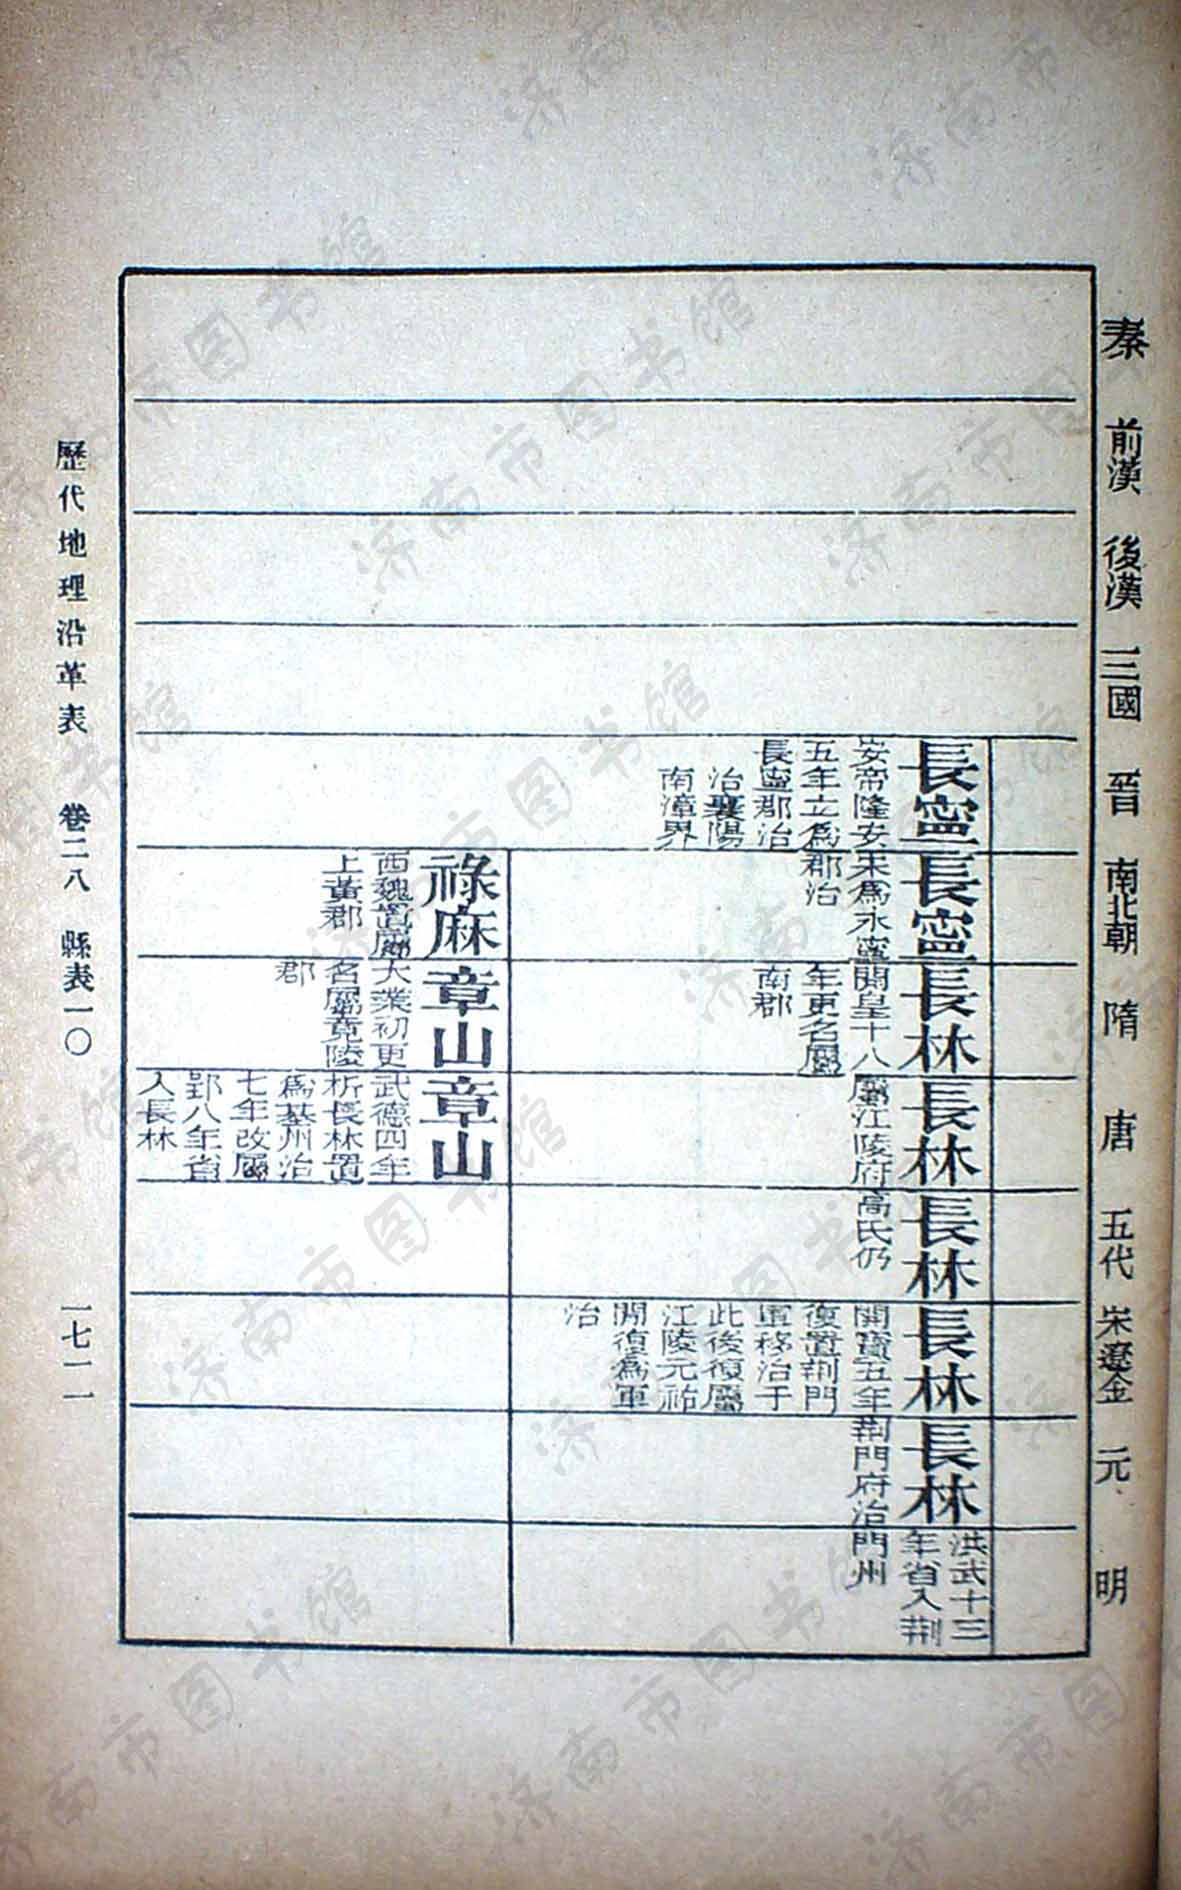 秦
前漢
後漢
三國
晉
南北朝
隋
唐
五代
宋遼金
元
明
長寧
安帝隆安
五年立爲
長寧郡治
治襄陽
南漳界
長寧
宋爲永寧
郡治
長林
開皇十八
年更名屬
南郡
長林
屬江陵府
長林
高氏仍
長林
開寶五年
復置荆門
軍移治于
此後復屬
江陵元祐
間復爲軍
治
長林
荆門府治
洪武十三
年省入荆
門州
祿麻
西魏置屬
上黃郡
章山
大業初更
名屬竟陵
郡
章山
武德四年
析長林置
爲基州治
七年改屬
郢八年省
入長林
歷代地理沿革表 卷二八 縣表一〇 一七一一
济南市图书馆